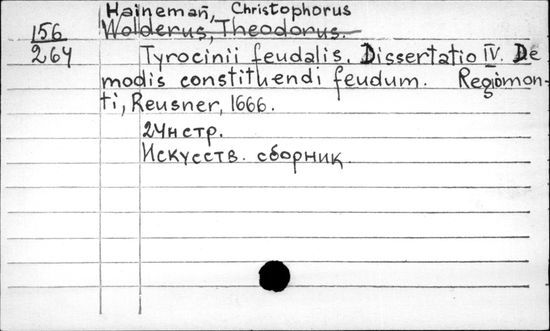 Haineman̄, Christophorus
156 Wolderus, Theodorus.
264 Tyrocinii feudalis. Dissertatio IV. De
modis constituendi feudum. Regiomon-
ti, Reusner, 1666.
24 н стр.
Искусств. сборник